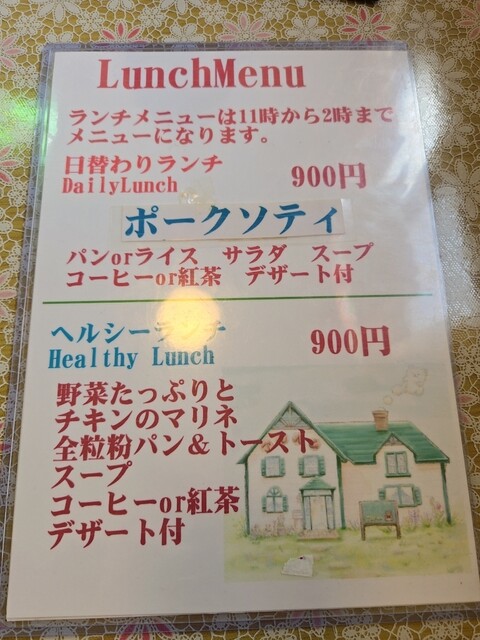 LunchMenu
ランチメニューは11時から2時まで
メニューになります。
日替わりランチ 900円
DailyLunch
ポークソティ
パンorライス サラダ スープ
コーヒーor紅茶 デザート付
ヘルシーランチ 900円
Healthy Lunch
野菜たっぷりと
チキンのマリネ
全粒粉パン＆トースト
スープ
コーヒーor紅茶
デザート付